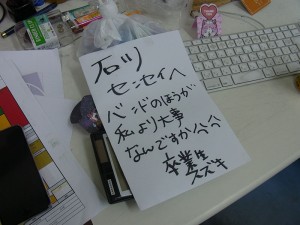 石ツ
センセイへ
バンドのほうが
私より大事
なんですか
卒業生
スズキ